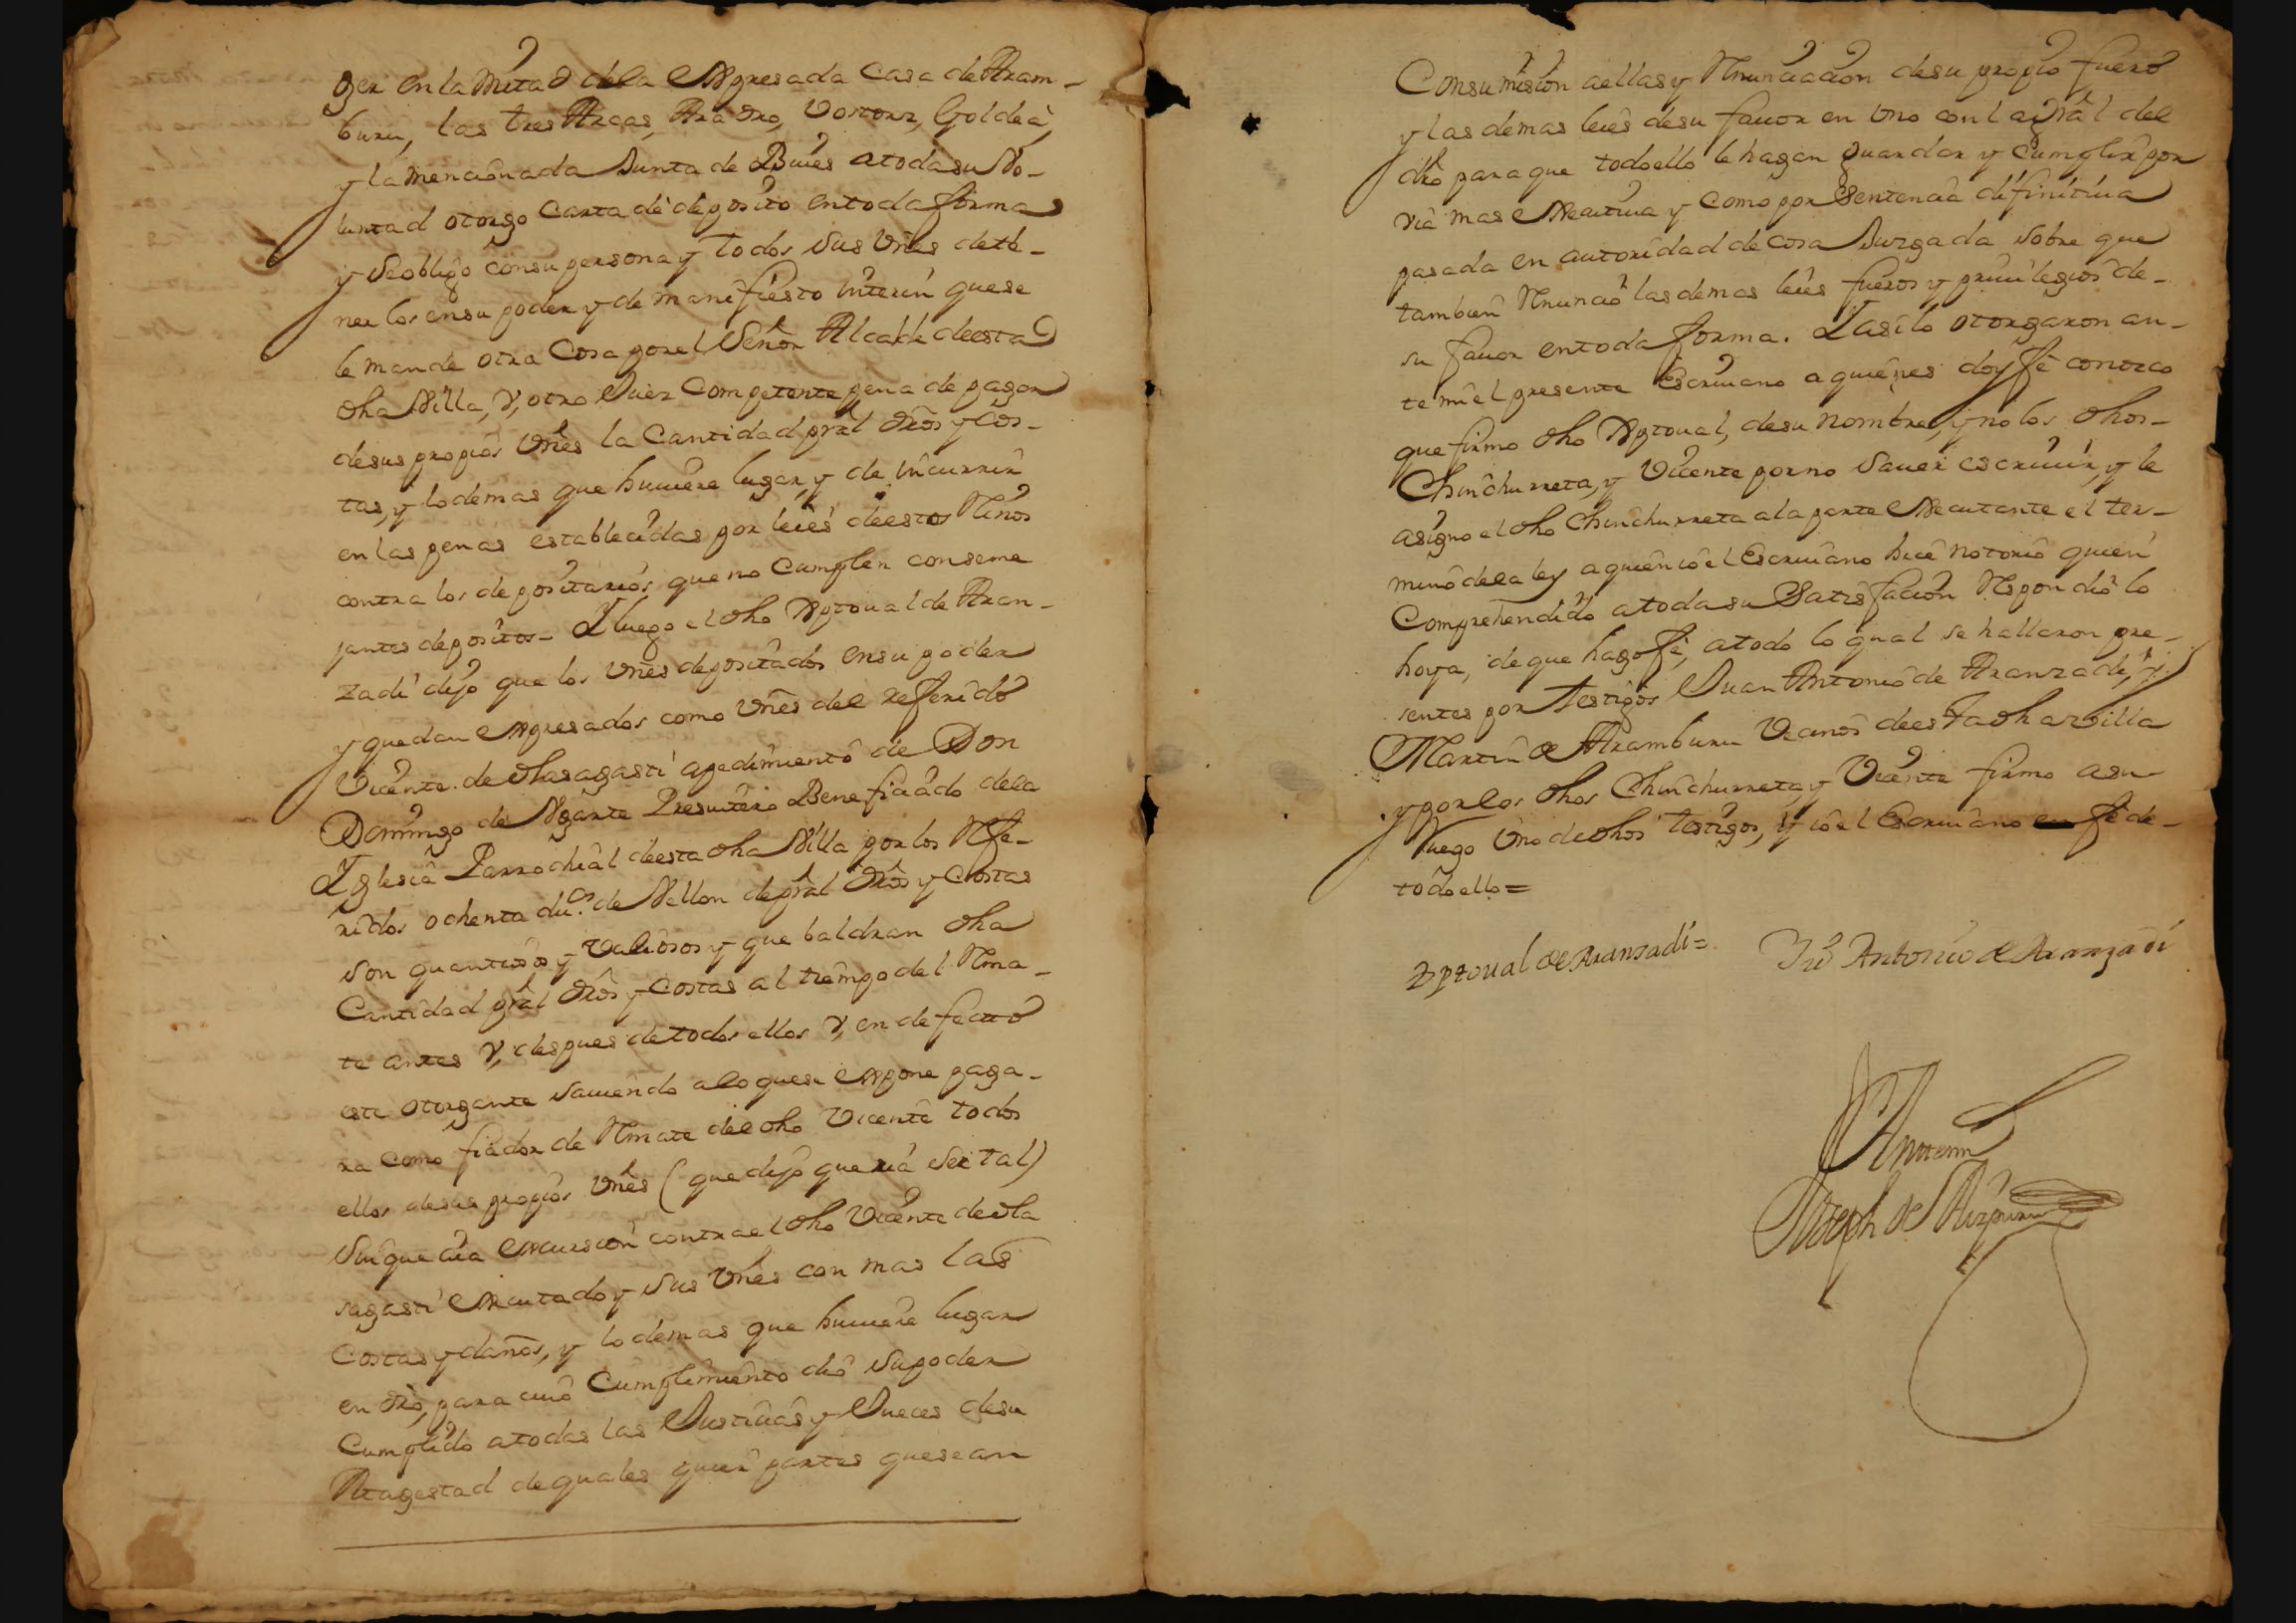 ger en la mitad dela expresada Casa de Aram-
buru, las tres Arcas, Aradro, Vostorz, Goldea,
y la mencionada Junta de Buies atoda su Vo-
luntad otorgo Carta de deposito entoda forma
y se obligo consu persona y todos sus Vnes dete-
nerlos ensu poder y de manifiesto interin quese
le mande otra Cosa por el Señor Alcalde deesta
dha Villa, V, otro Juez Competente pena de pagar
desus propios Vnes la Cantidad pral dros y Cos-
tas, y lodemas que huuiere lugar, y de incurrir
en las penas establecidas por leies deestos Rinos
contra los depositarios que no Cumplen conseme
jantes depositos- Y luego el dho Xptoual de Aran-
zadi dijo que los Vnes depositados ensu poder
y quedan expresados como Vnes del referido
Vicente de olasagasti apedimiento de Don
Domingo de Ygarte Presuitero Beneficiado dela
Yglesia Parrochial deesta dha Villa por los Refe-
ridos ochenta dus. de Vellon depral dros y Costas
son quantiosos y Valiosos y que baldran dha
Cantidad pral dros y Costas al tiempo del Rma-
te antes V, despues de todos ellos V, en defecto
este otorgante sauiendo aloquese expone paga-
ra como fiador de Rmate del dho Vicente todos
ellos desus propios Vnes (que dijo queria ser tal)
sinque aia excursion contra el dho Vicente de ola
sagasti executado y sus Vnes con mas las
Costas y daños, y lodemas que huuiere lugar
en dro, para cuio Cumplimiento dio supoder
Cumplido atodas las Justicias y Jueces desu
Magestad de quales quier partes quesean
Consumision aellas y Rnunciacion desu propio fuero
y las demas leies desu fauor en Vno con la gral del
dro para que todoello le hagan guardar y Cumplir por
via mas executiua y como por Sentencia difinitiua
pasada en autoridad de cosa Juzgada sobre que
tambien Rnuncio las demas leies fueros y priuilegios de-
su fauor entoda forma. Y asilo otorgaron an-
te mi el presente Escriuano aquienes doy fe conozco
que firmo dho Xptoual, desu nombre, y no los dhos-
Chinchurreta, y Vicente por no sauer escriuir, y le
asigno el dho Chinchurreta ala parte executante el ter-
mino dela ley aquien io el Escriuano hice notorio quien
Comprehendido atoda su Satisfacion Respondio lo
hoya, de que hago fe, atodo lo qual se hallaron pre-
sentes por testigos Juan Antonio de Aranzadi, y
Martin de Aramburu Vecinos deesta dha villa
y por los dhos Chinchurreta, y Vicente firmo asu
Ruego Vno de dhos testigos, y io el Escriuano en fe de-
todo ello=
Xptoual de Aranzadi= Jun Antonio de Aranzadi
Antemi
Joseph de Aizpuru